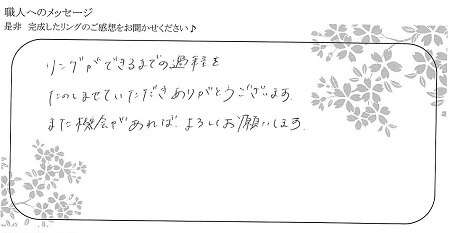 職人へのメッセージ
是非 完成したリングのご感想をお聞かせください♪
リングができるまでの過程を
たのしませていただきありがとうございます。
また機会があれば、よろしくお願いします。